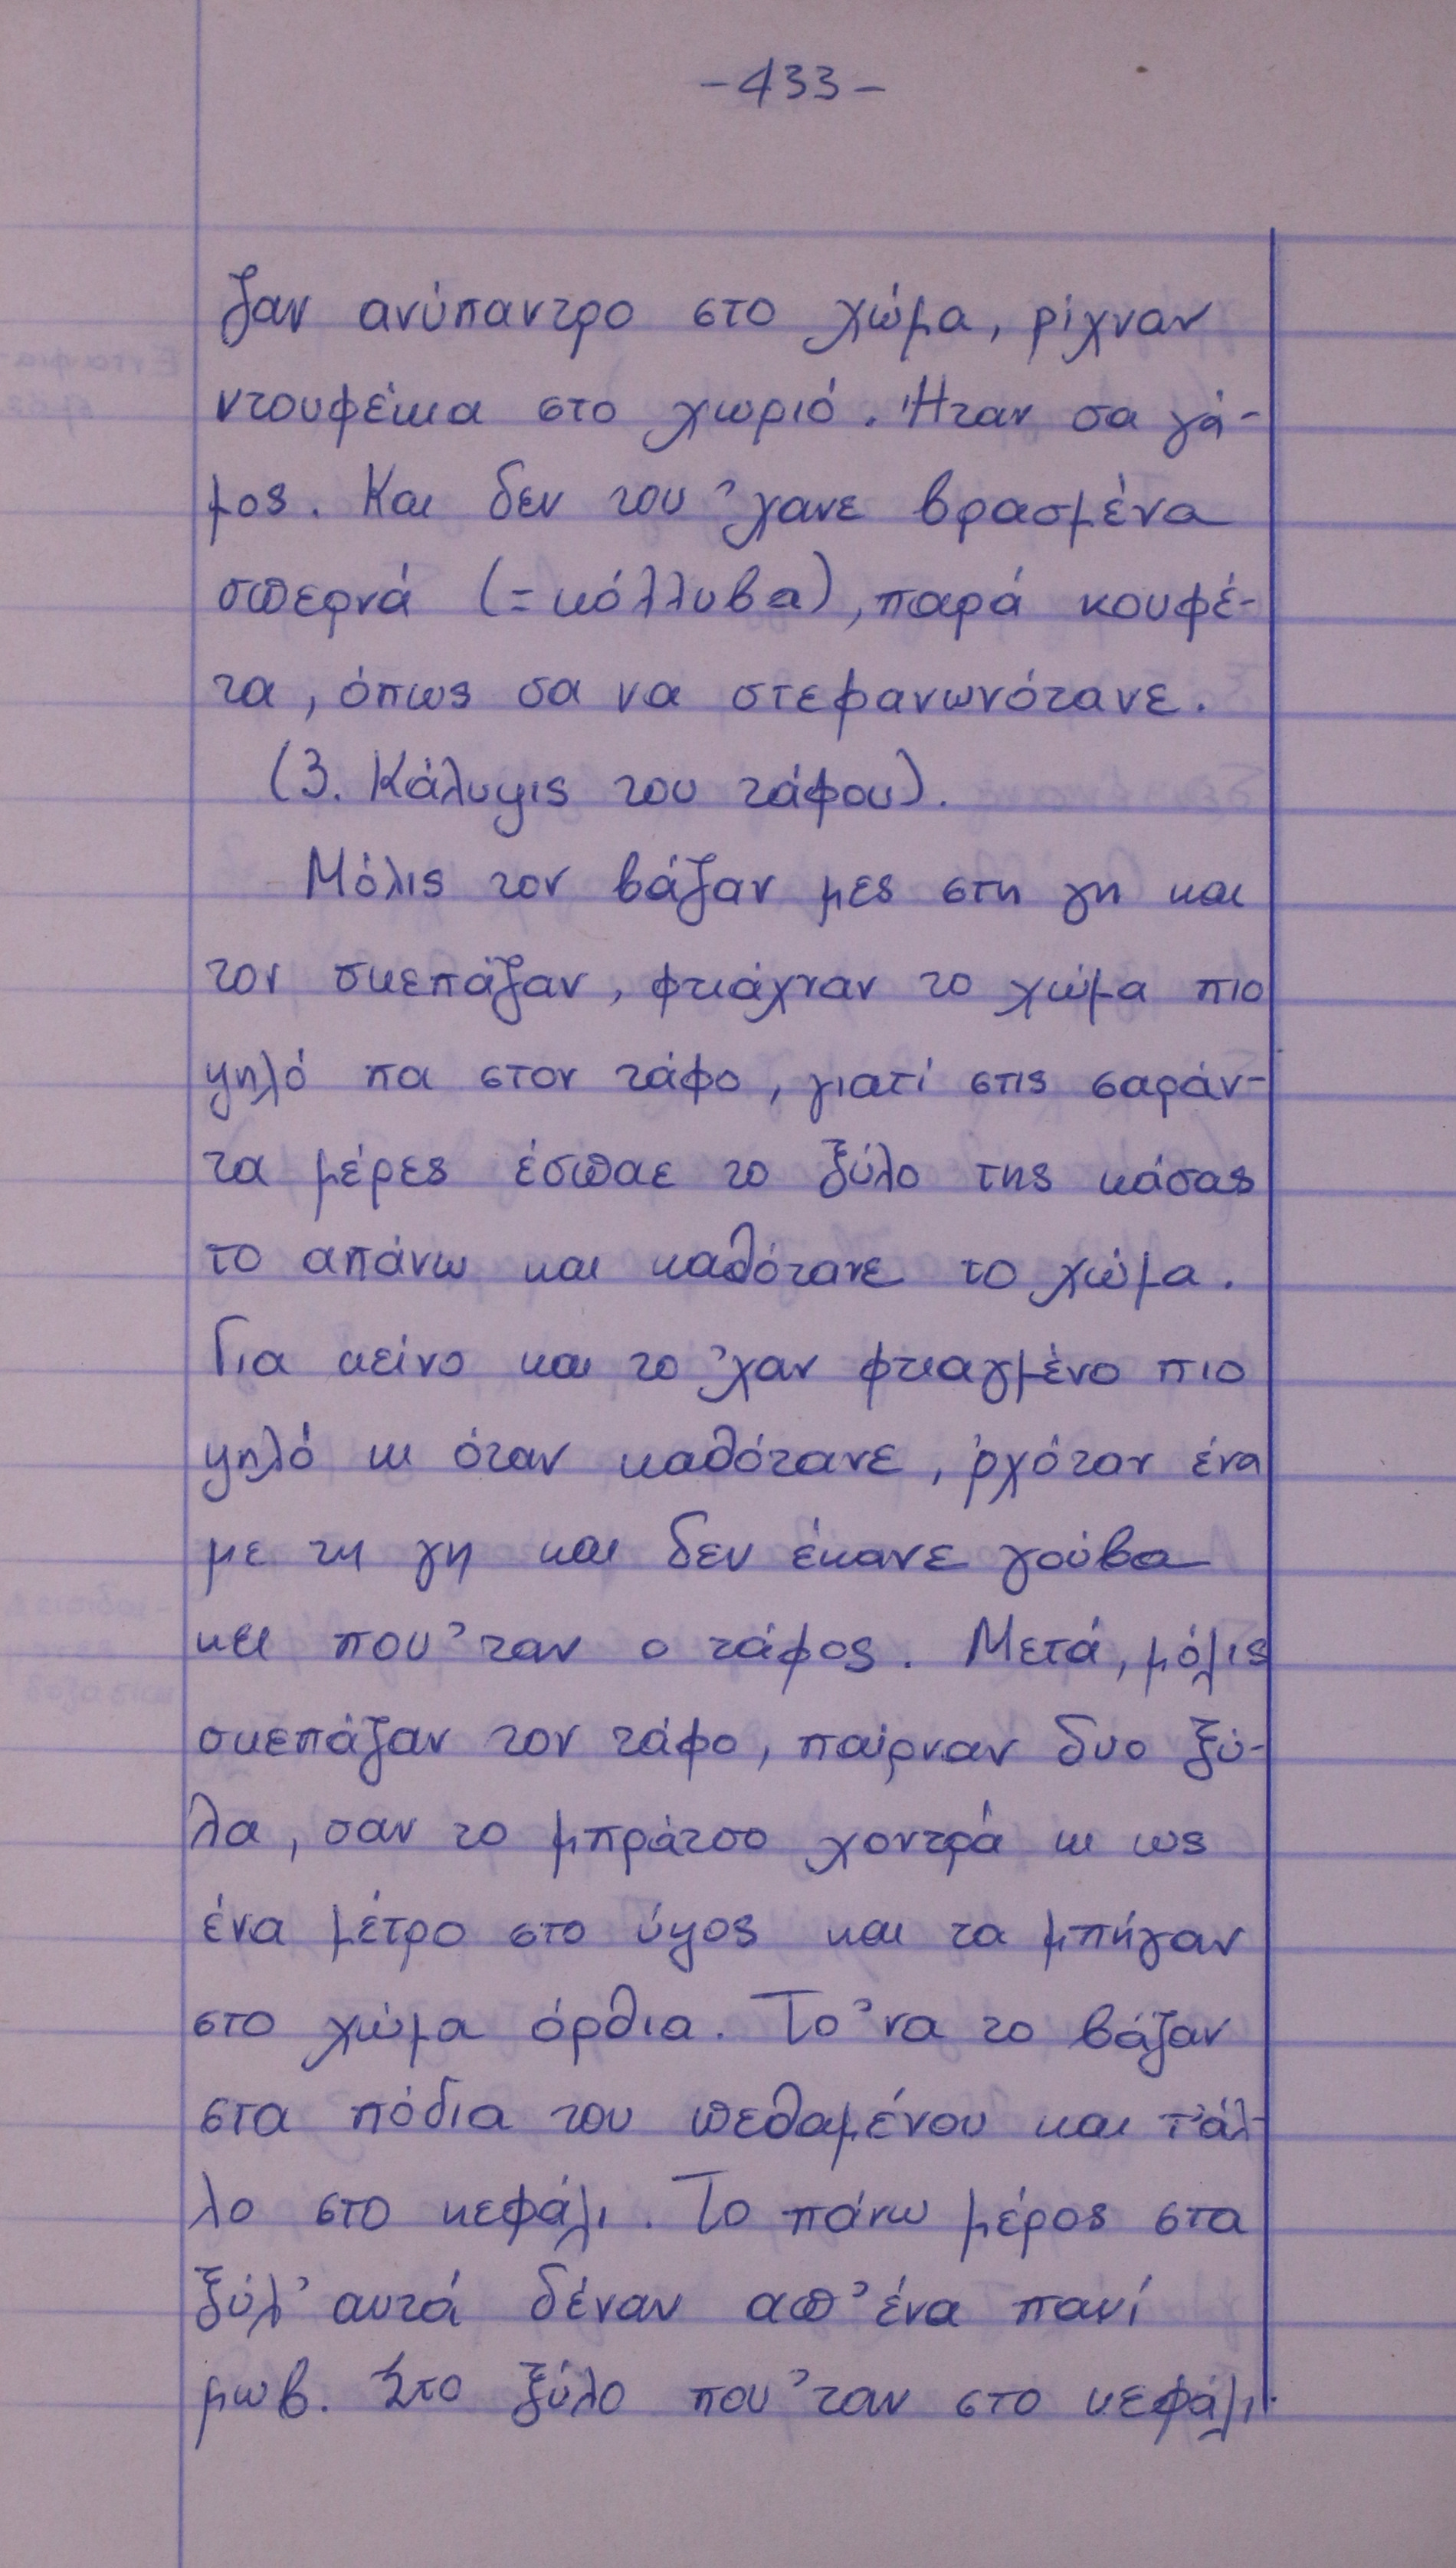 -433-
ζαν ανύπαντρο στο χώμα, ρίχναν
ντουφέκια στο χωριό. Ήταν σα γά-
μος. Και δεν του 'χανε βρασμένα
σπερνά (=κόλλυβα), παρά κουφέ-
τα, όπως σα να στεφανωνότανε.
(3. Κάλυψις του τάφου).
Μόλις τον βάζαν μες στη γη και
τον σκεπάζαν, φτιάχναν το χώμα πιο
ψηλό πα στον τάφο, γιατί στις σαράν-
τα μέρες έσπαε το ξύλο της κάσας
το απάνω και καθότανε το χώμα.
Για κείνο και το 'χαν φτιαγμένο πιο
ψηλό κι όταν καθότανε, ρχόταν ένα
με τη γη και δεν έκανε γούβα
κει που 'ταν ο τάφος. Μετά, μόλις
σκεπάζαν τον τάφο, παίρναν δυο ξύ-
λα, σαν το μπράτσο χοντρά κι ως
ένα μέτρο στο ύψος και τα μπήγαν
στο χώμα όρθια. Το 'να το βάζαν
στα πόδια του πεθαμένου και τ' άλ-
λο στο κεφάλι. Το πάνω μέρος στα
ξύλ' αυτά δέναν απ' ένα πανί
μωβ. Στο ξύλο που 'ταν στο κεφάλι